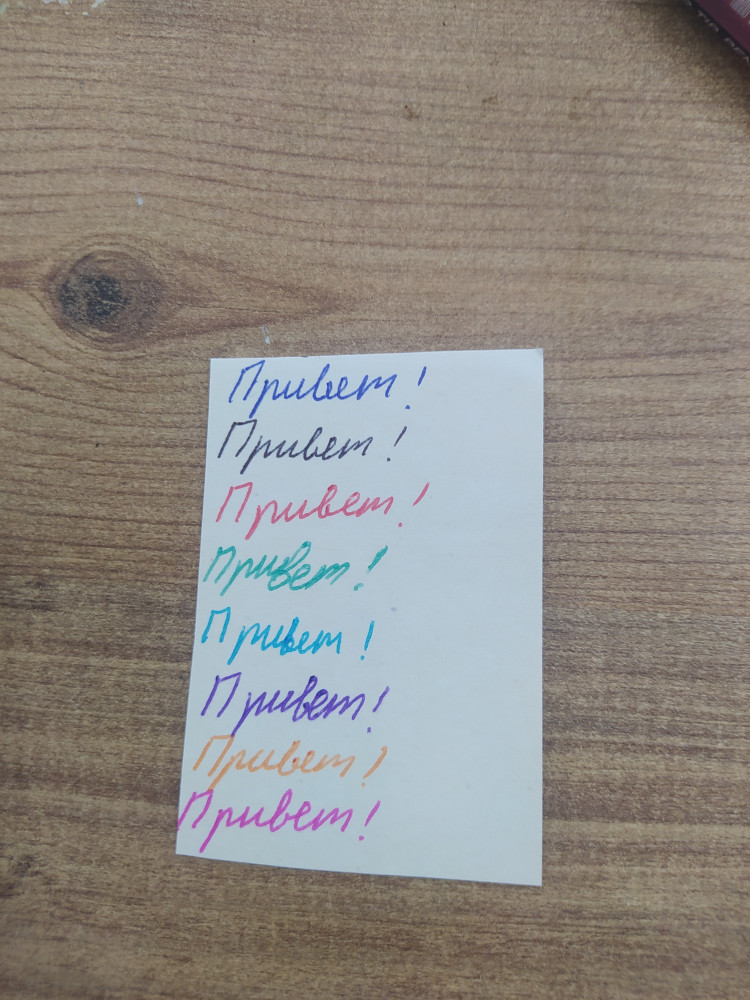 Привет!
Привет!
Привет!
Привет!
Привет!
Привет!
Привет!
Привет!